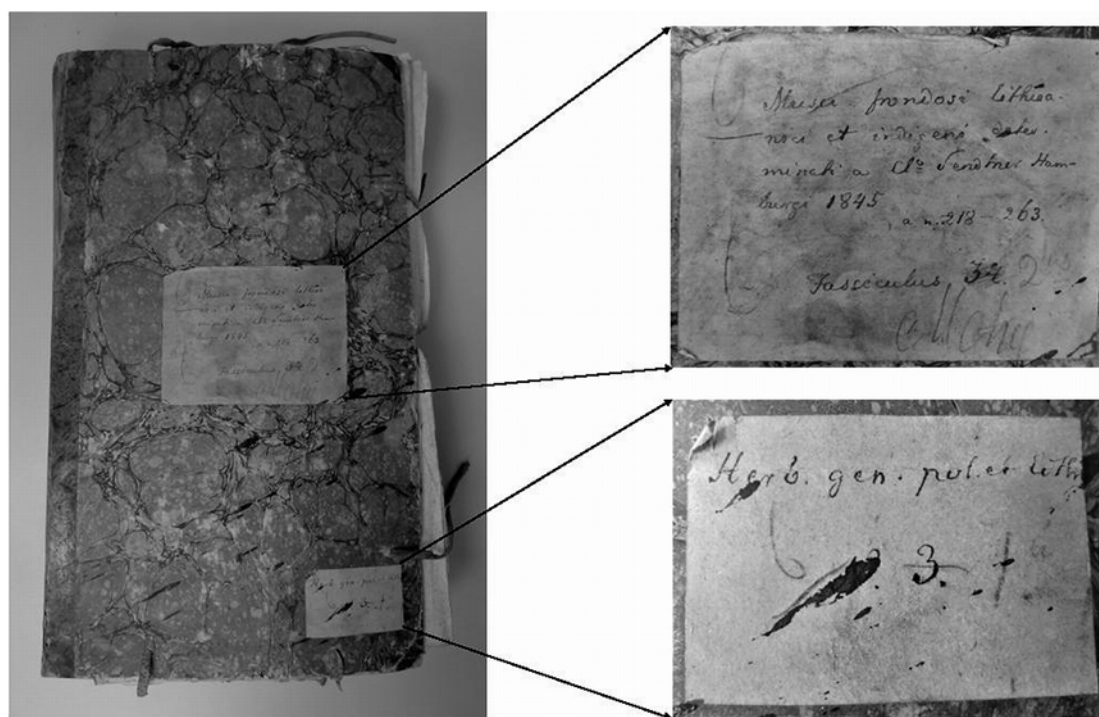 Musci frondosi lithua-
nici et indigeni deter-
minati a Cl° Sendtner Ham-
burgi 1845
a n. 218 – 263.
Fasciculus 34. 2
Herb. gen. pol. et lith
3. 1